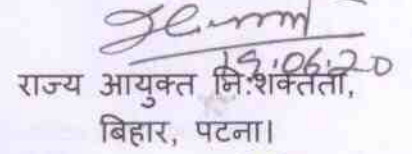 19.06.20
राज्य आयुक्त निःशक्तता,
बिहार, पटना।